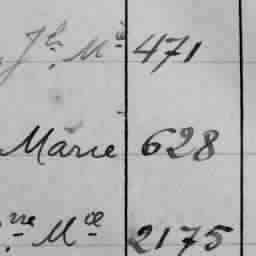 Jh. Mie 471
Marie 628
ne Mce 2175